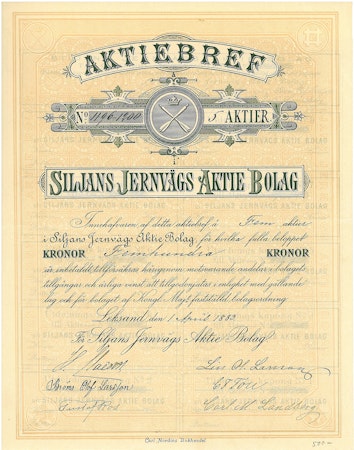 AKTIEBREF
No 1196-1200 5 AKTIER
SILJANS JERNVÄGS AKTIE BOLAG
Innehafvaren af detta aktiebref å Fem aktier
i Siljans Jernvägs Aktie Bolag, för hvilka fulla beloppet
KRONOR Femhundra KRONOR
är inbetaldt tillförsäkras härigenom motsvarande andelar i bolagets
tillgångar och årliga vinst att tillgodonjutas i enlighet med gällande
lag och för bolaget af Kongl. Maj:t fastställd bolagsordning
Leksand den 1 April 1883
För Siljans Jernvägs Aktie Bolag
Olof Larsson
Carl Nordins Bokhandel
500:-